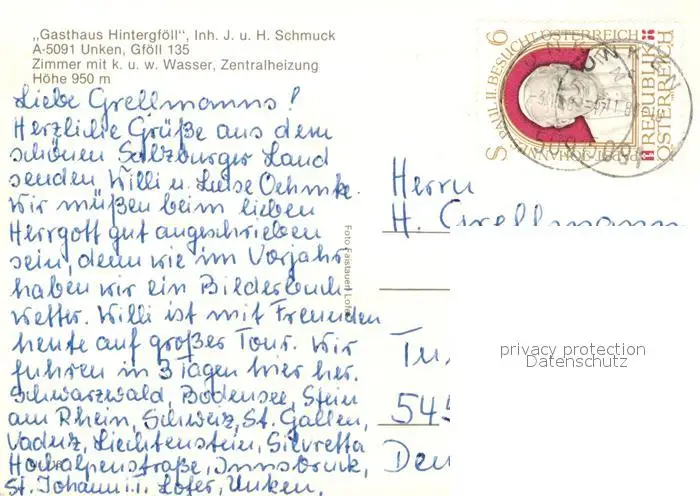 „Gasthaus Hintergföll", Inh. J. u. H. Schmuck
A-5091 Unken, Gföll 135
Zimmer mit k. u. w. Wasser, Zentralheizung
Höhe 950 m
Liebe Grellmanns!
Herzliche Grüße aus dem
schönen Salzburger Land
senden Willi u. Luise Oehmke.
Wir müßen beim lieben
Herrgott gut angeschrieben
sein, denn wie im Vorjahr
haben wir ein Bilderbuch
wetter. Willi ist mit Freunden
heute auf großer Tour. Wir
fuhren in 3 Tagen hier her.
Schwarzwald, Bodensee, Stein
am Rhein, Schweiz, St. Gallen,
Vaduz, Liechtenstein, Silvretta
Hochalpenstraße, Innsbruck,
St. Johann i. T. Lofer, Unken.
Foto Faistauer, Lofer
S 6
PAPST JOHANNES PAUL II. BESUCHT ÖSTERREICH
REPUBLIK
ÖSTERREICH
UNKEN
Herrn
H. Grellmann
privacy protection
Datenschutz